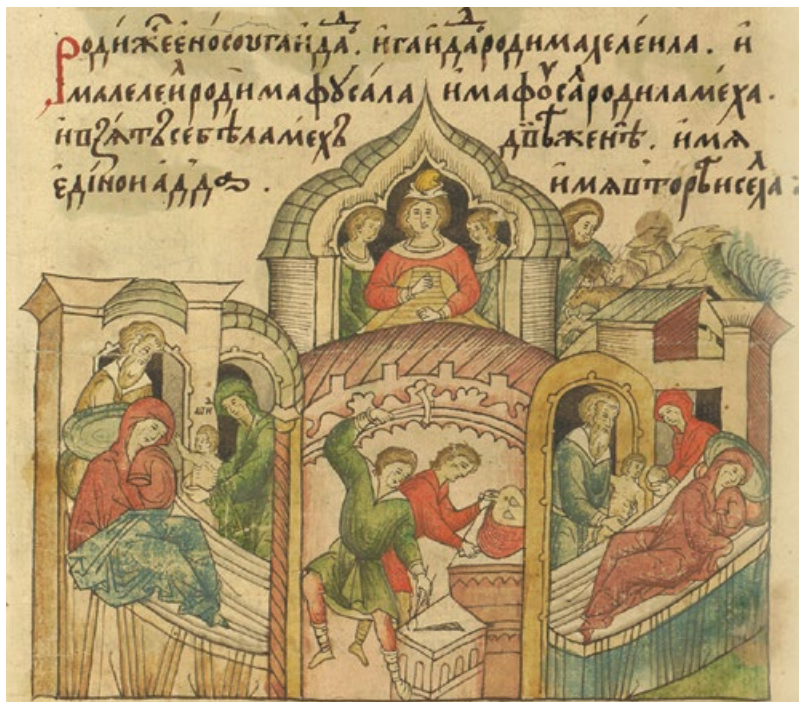 Родижееносоугаидаⷣ. игаидаⷣродималелеила. и
малелеиⷧродимафѵсала имафоусаⷧродиламеха.
ивзѧтъсебѣламехъ двѣженѣ. имѧ
единоиадда. имѧвторѣиселⷧа